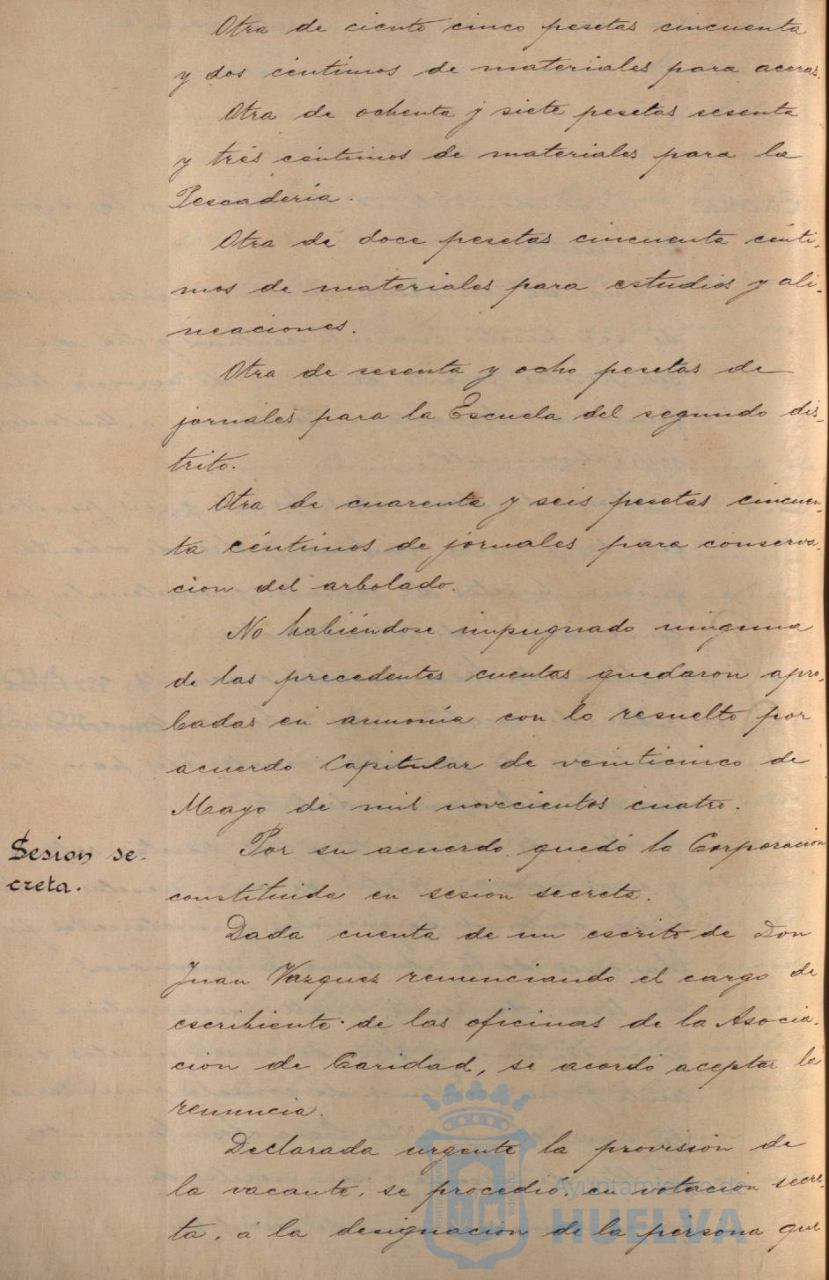 Otra de ciento cinco pesetas cincuenta
y dos céntimos de materiales para aceras.
Otra de ochenta y siete pesetas sesenta
y trés céntimos de materiales para la
Pescadería.
Otra de doce pesetas cincuenta cénti-
mos de materiales para estudios y ali-
neaciones.
Otra de sesenta y ocho pesetas de
jornales para la Escuela del segundo dis-
trito.
Otra de cuarenta y seis pesetas cincuen-
ta céntimos de jornales para conserva-
cion del arbolado.
No habiéndose impugnado ninguna
de las precedentes cuentas quedaron apro-
badas en armonía con lo resuelto por
acuerdo Capitular de veinticinco de
Mayo de mil novecientos cuatro.
Sesion se-
creta.
Por su acuerdo quedó la Corporacion
constituida en sesion secreta.
Dada cuenta de un escrito de Don
Juan Vazquez renunciando el cargo de
escribiente de las oficinas de la Asocia-
cion de Caridad, se acordó aceptar la
renuncia.
Declarada urgente la provisión de
la vacante, se procedió, en votacion secre-
ta, á la designacion de la persona que
Ayuntamiento de
HUELVA